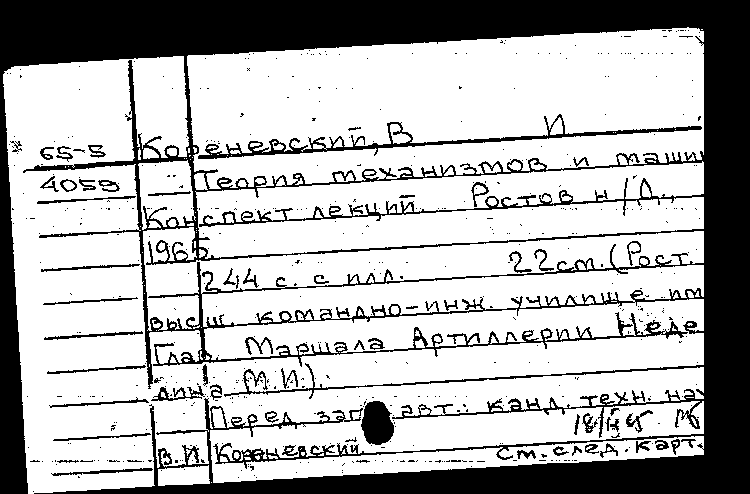 65-5 Кореневский, В И
4059 Теория механизмов и машин
Конспект лекций. Ростов н/Д.,
1965.
244 с. с илл. 22 см. (Рост.
высш. командно-инж. училище им
Глав. Маршала Артиллерии Неде
лина М.И.).
Перед загл. авт.: канд. техн. нау
В.И. Кореневский.
См. след. карт.